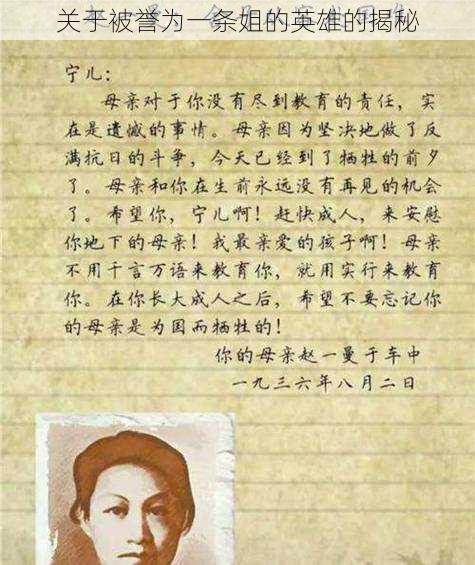 关于被誉为一条姐的英雄的揭秘
宁儿：
母亲对于你没有尽到教育的责任，实
在是遗憾的事情。母亲因为坚决地做了反
满抗日的斗争，今天已经到了牺牲的前夕
了。母亲和你在生前永远没有再见的机会
了。希望你，宁儿啊！赶快成人，来安慰
你地下的母亲！我最亲爱的孩子啊！母亲
不用千言万语来教育你，就用实行来教育
你。在你长大成人之后，希望不要忘记你
的母亲是为国而牺牲的！
你的母亲赵一曼于车中
一九三六年八月二日